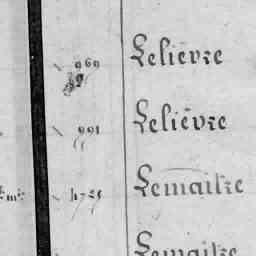 969 Lelièvre
991 Lelièvre
Lemaitre
Lemaitre